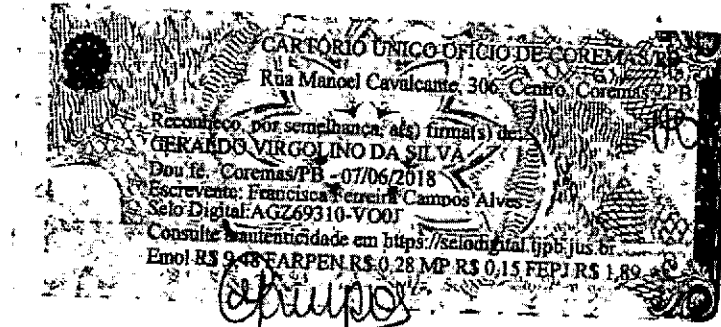 CARTÓRIO ÚNICO OFÍCIO DE COREMAS/PB
Rua Manoel Cavalcante, 306, Centro, Coremas - PB
Reconheço, por semelhança, a(s) firma(s) de:
GERALDO VIRGOLINO DA SILVA
Dou fé. Coremas/PB - 07/06/2018
Escrevente: Francisca Ferreira Campos Alves
Selo Digital: AGZ69310-VO0J
Consulte a autenticidade em https://selodigital.tjpb.jus.br
Emol R$ 9,48 FARPEN R$ 0,28 MP R$ 0,15 FEPJ R$ 1,89